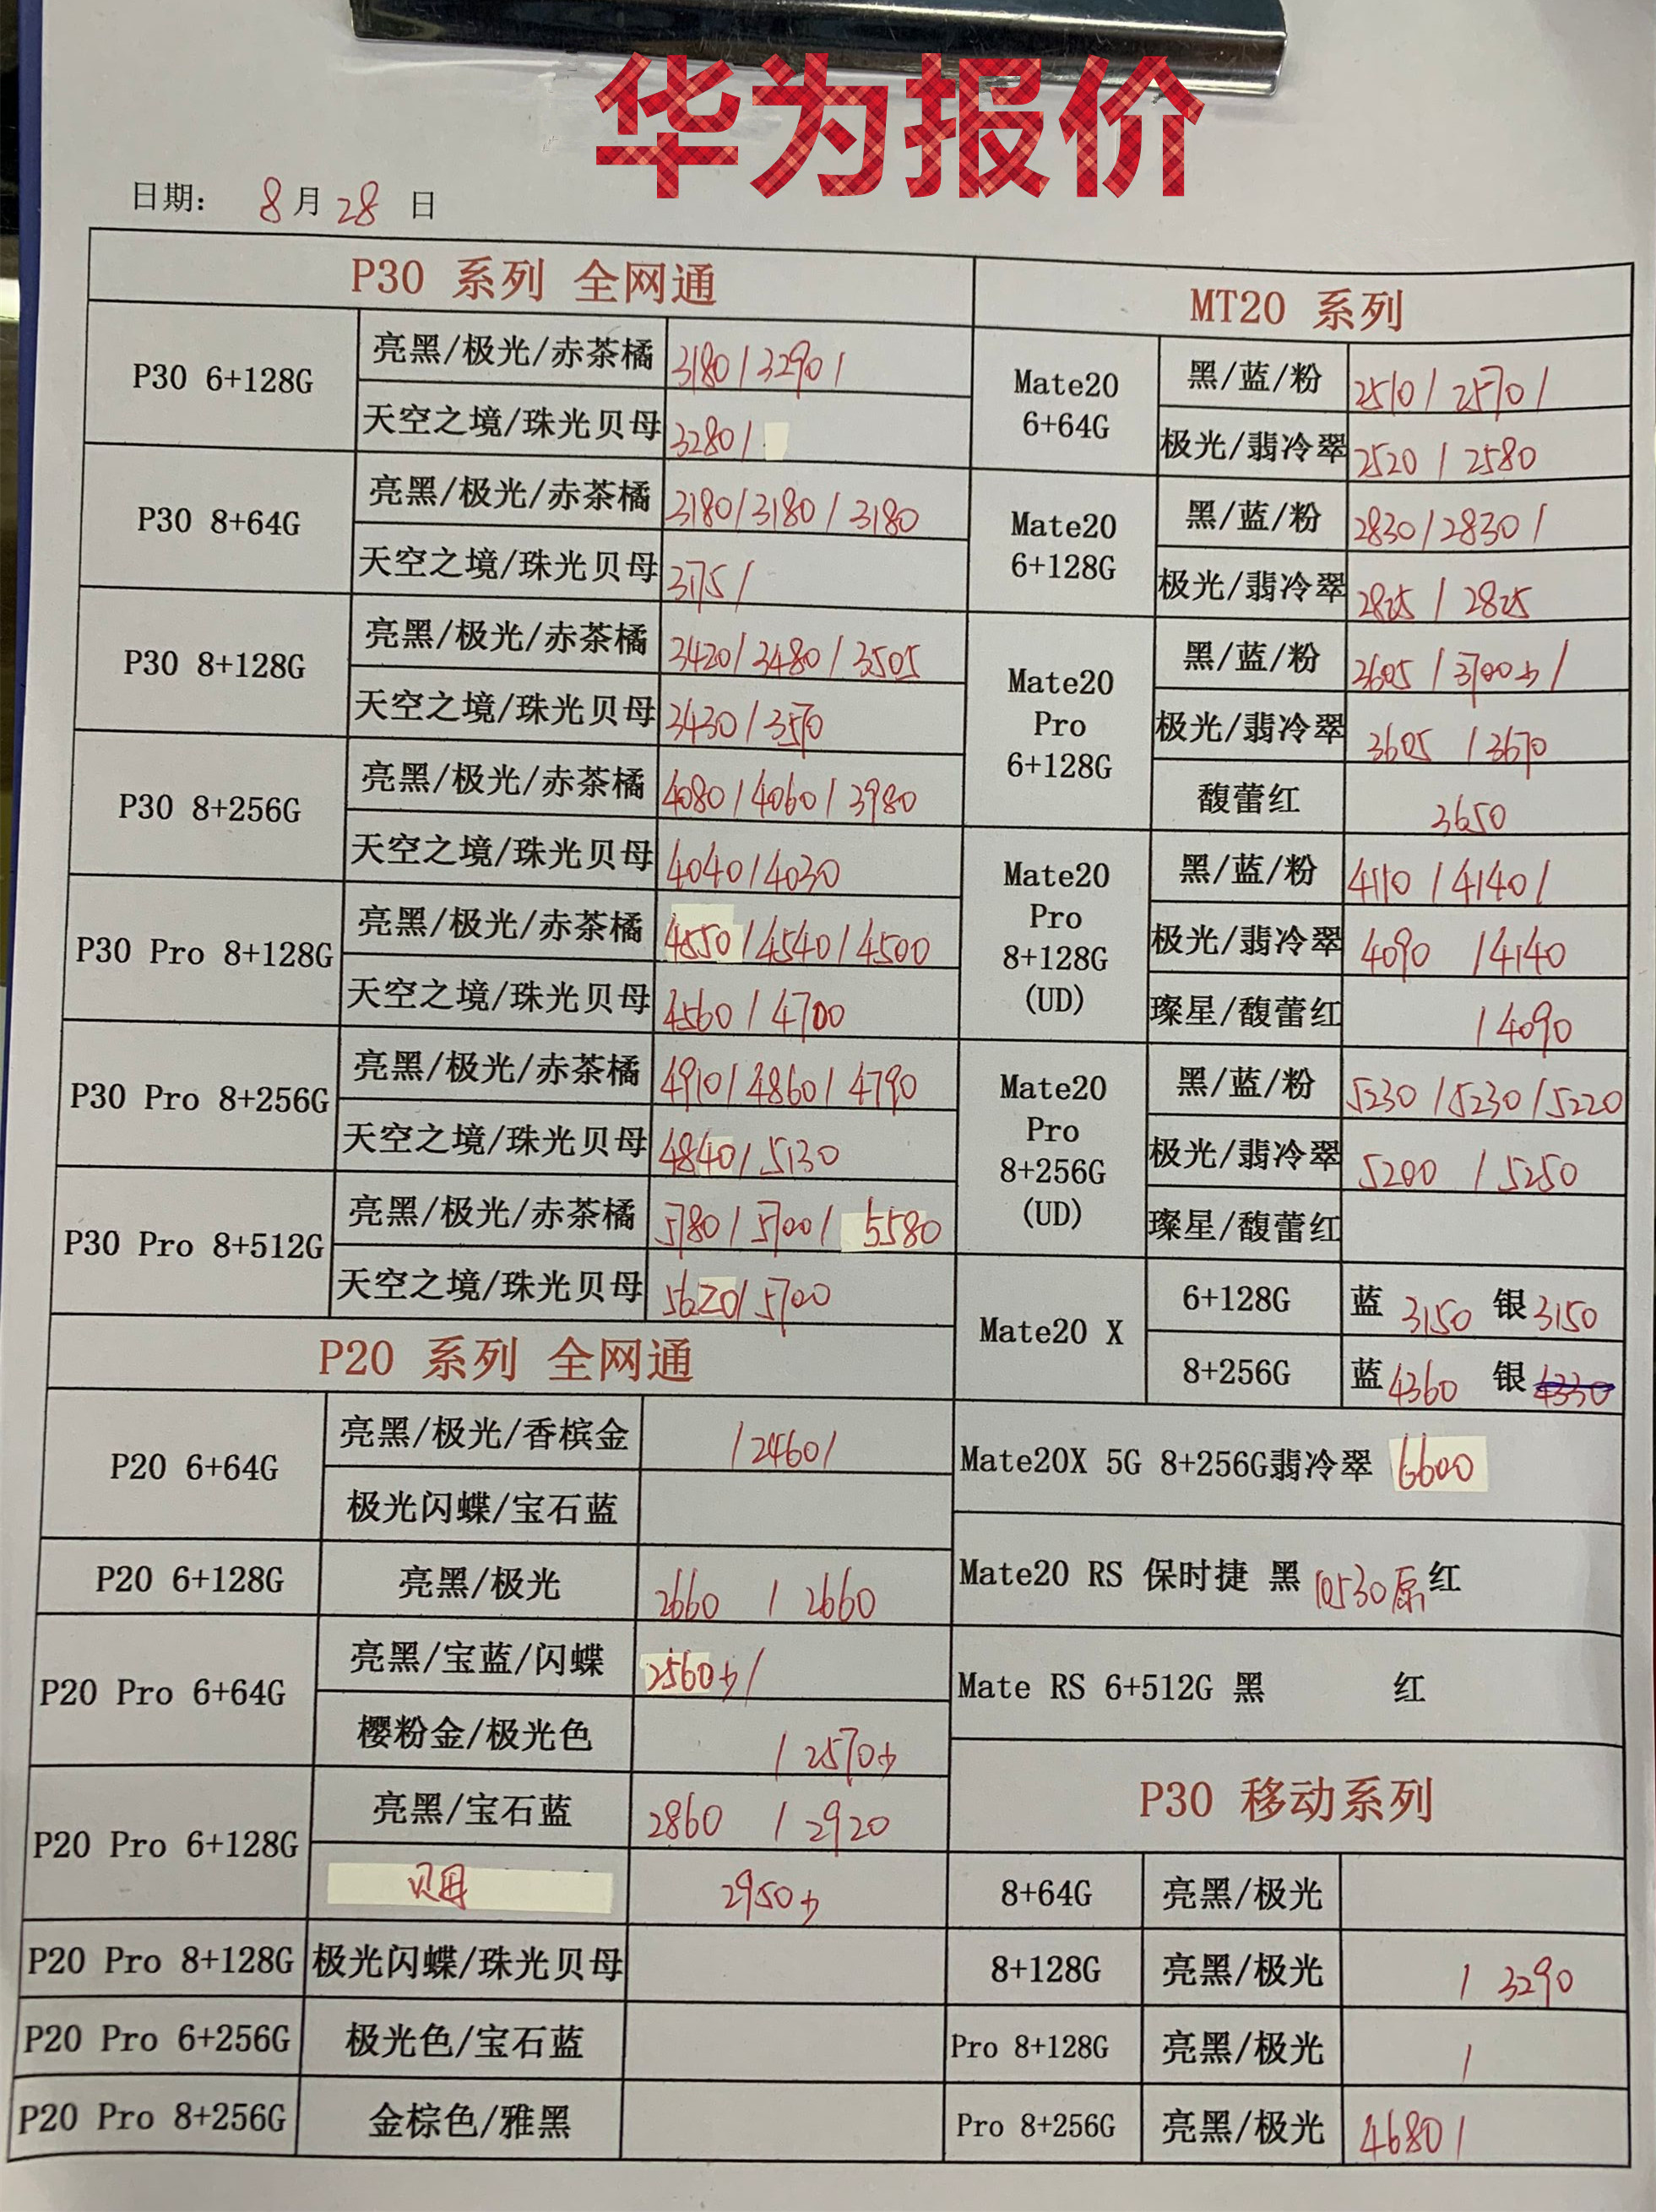 华为报价
日期： 8月28日
P30 系列 全网通
P30 6+128G
亮黑/极光/赤茶橘 3180/3290/
天空之境/珠光贝母 3280/
P30 8+64G
亮黑/极光/赤茶橘 3180/3180/3180
天空之境/珠光贝母 3175/
P30 8+128G
亮黑/极光/赤茶橘 3420/3480/3505
天空之境/珠光贝母 3430/3570
P30 8+256G
亮黑/极光/赤茶橘 4080/4060/3980
天空之境/珠光贝母 4040/4030
P30 Pro 8+128G
亮黑/极光/赤茶橘 4550/4540/4500
天空之境/珠光贝母 4560/4700
P30 Pro 8+256G
亮黑/极光/赤茶橘 4910/4860/4790
天空之境/珠光贝母 4840/5130
P30 Pro 8+512G
亮黑/极光/赤茶橘 5780/5700/5580
天空之境/珠光贝母 5620/5700
P20 系列 全网通
P20 6+64G
亮黑/极光/香槟金 /2460/
极光闪蝶/宝石蓝
P20 6+128G
亮黑/极光 2660 / 2660
P20 Pro 6+64G
亮黑/宝蓝/闪蝶 2560少/
樱粉金/极光色 /2570少
P20 Pro 6+128G
亮黑/宝石蓝 2860 / 2920
贝母 2950少
P20 Pro 8+128G 极光闪蝶/珠光贝母
P20 Pro 6+256G 极光色/宝石蓝
P20 Pro 8+256G 金棕色/雅黑
MT20 系列
Mate20
6+64G
黑/蓝/粉 2510/2570/
极光/翡冷翠 2520/2580
Mate20
6+128G
黑/蓝/粉 2830/2830/
极光/翡冷翠 2825/2825
Mate20
Pro
6+128G
黑/蓝/粉 3605/3700少/
极光/翡冷翠 3605/3670
馥蕾红 3650
Mate20
Pro
8+128G
(UD)
黑/蓝/粉 4110/4140/
极光/翡冷翠 4090 /4140
璨星/馥蕾红 /4090
Mate20
Pro
8+256G
(UD)
黑/蓝/粉 5230/5230/5220
极光/翡冷翠 5200 / 5250
璨星/馥蕾红
Mate20 X
6+128G 蓝 3150 银 3150
8+256G 蓝 4360 银 4330
Mate20X 5G 8+256G翡冷翠 6600
Mate20 RS 保时捷 黑 10530原 红
Mate RS 6+512G 黑 红
P30 移动系列
8+64G 亮黑/极光
8+128G 亮黑/极光 / 3290
Pro 8+128G 亮黑/极光 /
Pro 8+256G 亮黑/极光 4680/